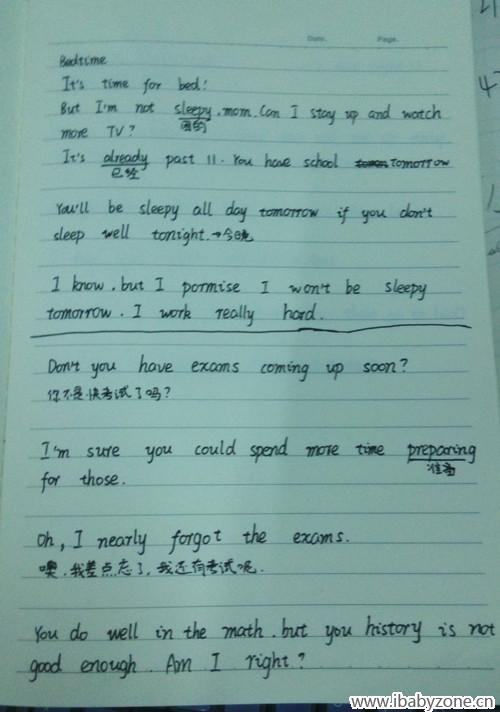 Date.
Page.
Bedtime
It's time for bed!
But I'm not sleepy, mom. Can I stay up and watch
困的
more TV?
It's already past 11. You have school tomorrow
已经
You'll be sleepy all day tomorrow if you don't
sleep well tonight.→今晚
I know, but I pormise I won't be sleepy
tomorrow. I work really hard.
Don't you have exams coming up soon?
你不是快考试了吗?
I'm sure you could spend more time preparing
准备
for those.
Oh, I nearly forgot the exams.
噢,我差点忘了,我还有考试呢.
You do well in the math, but you history is not
good enough. Am I right?
www.ibabyzone.cn